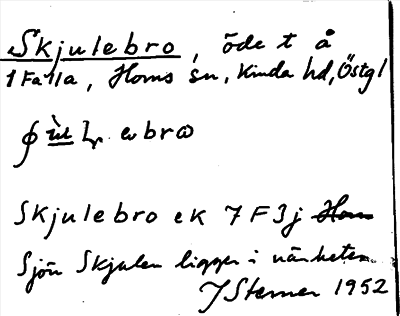 Skjulebro, öde t å
1 Falla, Horns sn, Kinda hd, Östgl
ebro
Skjulebro ek 7 F 3j Horn
Sjön Skjulen ligger i närheten
J Sterner 1952